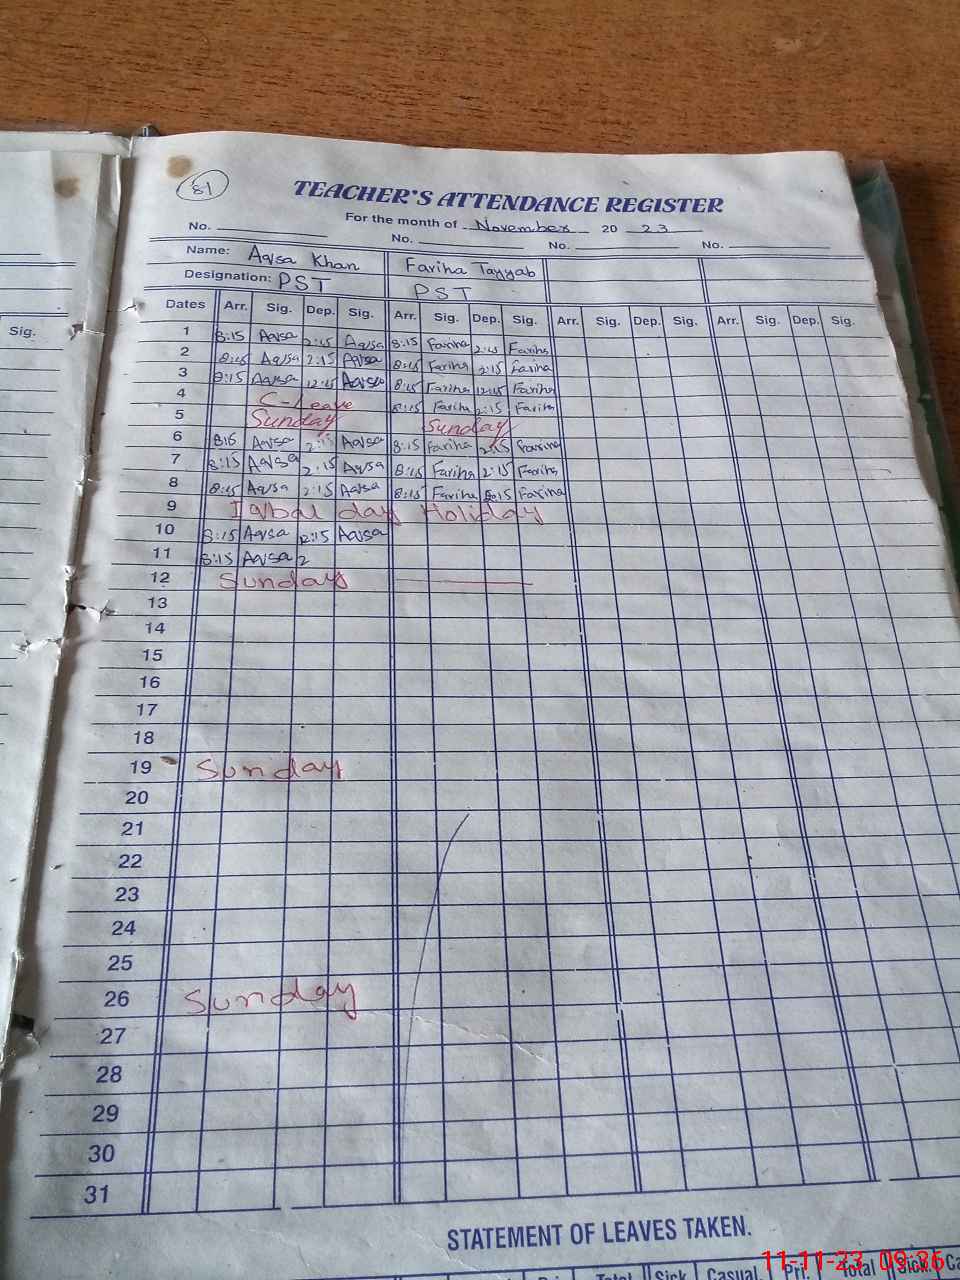 81
TEACHER'S ATTENDANCE REGISTER
For the month of November 20 23
No. No. No. No.
Name: Aqsa Khan Fariha Tayyab
Designation: PST PST
Sig.
Dates Arr. Sig. Dep. Sig. Arr. Sig. Dep. Sig. Arr. Sig. Dep. Sig. Arr. Sig. Dep. Sig.
1 8:15 Aqsa 2:15 Aqsa 8:15 Fariha 2:15 Fariha
2 8:15 Aqsa 2:15 Aqsa 8:15 Fariha 2:15 Fariha
3 8:15 Aqsa 12:15 Aqsa 8:15 Fariha 12:15 Fariha
4 C-Leave 8:15 Fariha 2:15 Fariha
5 Sunday Sunday
6 8:15 Aqsa 2:15 Aqsa 8:15 Fariha 2:15 Fariha
7 8:15 Aqsa 2:15 Aqsa 8:15 Fariha 2:15 Fariha
8 8:15 Aqsa 2:15 Aqsa 8:15 Fariha Fariha
9 Iqbal day Holiday
10 8:15 Aqsa 12:15 Aqsa
11 8:15 Aqsa 2
12 Sunday
13
14
15
16
17
18
19 Sunday
20
21
22
23
24
25
26 Sunday
27
28
29
30
31
STATEMENT OF LEAVES TAKEN.
Total Sick Casual Pri. Total Sick. Ca
11-11-23 09:36